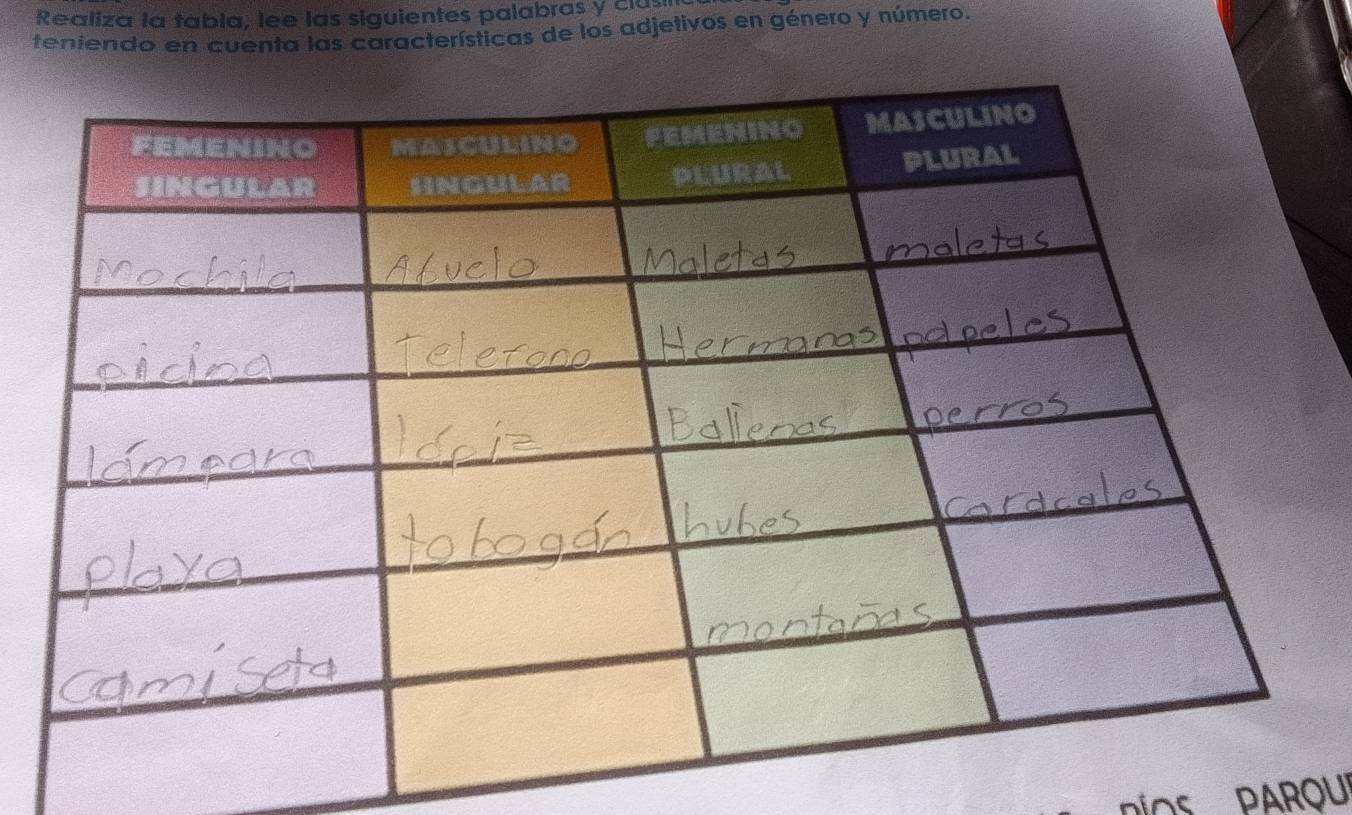 Realiza la tabla, lee las siguientes palabras y
teniendo en cuenta las características de los adjetivos en género y número.
FEMENINO SINGULAR MASCULINO SINGULAR FEMENINO PLURAL MASCULINO PLURAL
Mochila Abuelo Maletas maletas
picina Telefono Hermanas papeles
lámpara lápiz Ballenas perros
playa tobogán hubes caracales
camiseta montañas
PARQU